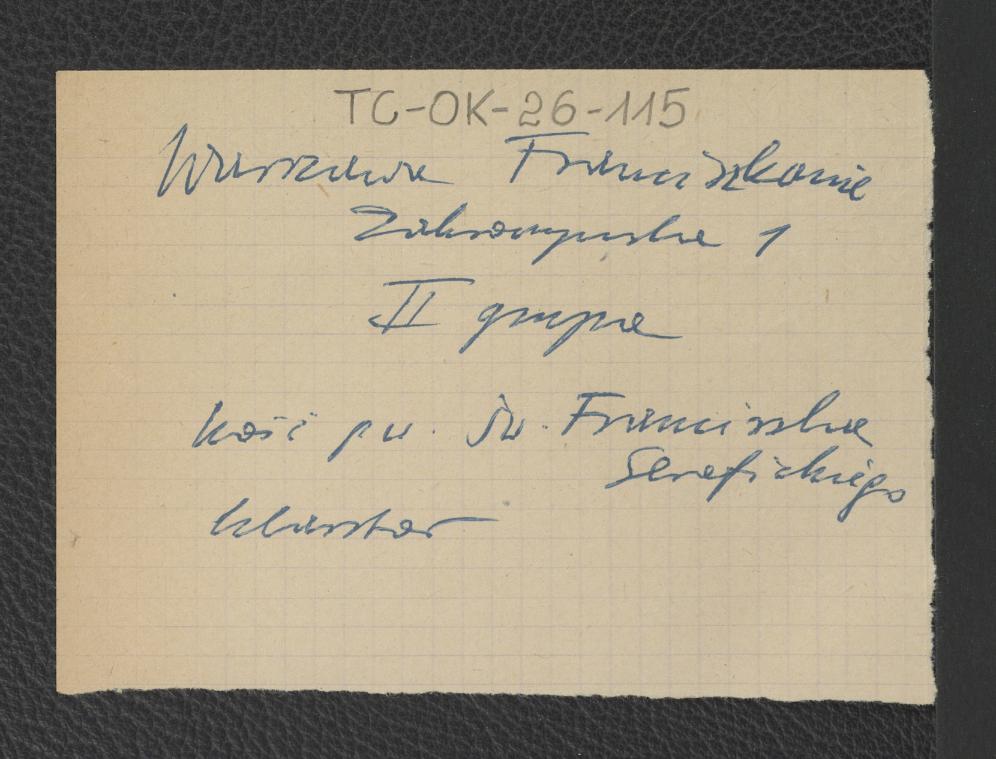 TC-OK-26-115
Warszawa Franciszkanie
Zakroczymska 1
II grupa
kość pw. Św. Franciszka
Serafickiego
klasztor